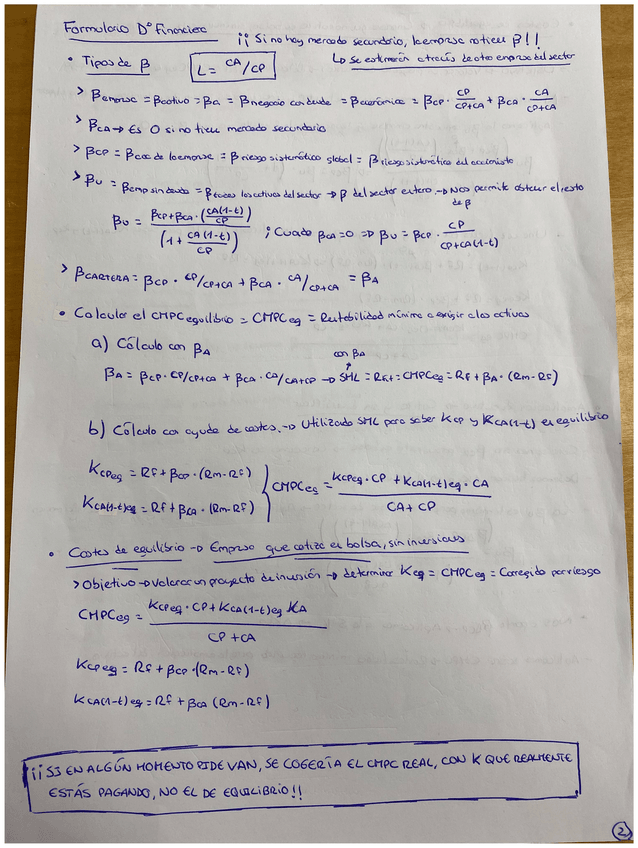 Formulario Dº Financiera
¡¡ Si no hay mercado secundario, la empresa no tiene β!!
↳ Se estimará a través de otra empresa del sector
• Tipos de β L = CA/CP
> βempresa = βactivo = βa = βnegocio con deuda = βeconómica = βCP · CP/(CP+CA) + βCA · CA/(CP+CA)
> βCA → Es 0 si no tiene mercado secundario
> βCP = βacc de la empresa = β riesgo sistemático global = β riesgo sistemático del accionista
> βU = βemp sin deuda = βtodos los activos del sector → β del sector entero → Nos permite obtener el resto de β
βU = (βCP + βCA · (CA(1-t)/CP)) / (1 + CA(1-t)/CP) ; Cuando βCA = 0 ⇒ βU = βCP · CP/(CP+CA(1-t))
> βCARTERA = βCP · CP/CP+CA + βCA · CA/CP+CA = βA
• Calcular el CMPC equilibrio = CMPCeq = Rentabilidad mínima a exigir a los activos
a) Cálculo con βA
con βA
βA = βCP · CP/CP+CA + βCA · CA/CA+CP → SML = REt = CMPCeq = RF + βA · (Rm - RF)
b) Cálculo con ayuda de costes → Utilizado SML para saber KCP y KCA(1-t) en equilibrio
KCPeq = RF + βCP · (Rm - RF)
KCA(1-t)eq = RF + βCA · (Rm - RF)
} CMPCeq = (KCPeq · CP + KCA(1-t)eq · CA) / (CA + CP)
• Costes de equilibrio → Empresa que cotiza en bolsa, sin inversiones
> Objetivo → Valorar un proyecto de inversión → determinar Keq = CMPCeq = Corregido por riesgo
CMPCeq = (KCPeq · CP + KCA(1-t)eq · CA) / (CP + CA)
KCPeq = RF + βCP · (Rm - RF)
KCA(1-t)eq = RF + βCA (Rm - RF)
¡¡SI EN ALGÚN MOMENTO PIDE VAN, SE COGERÍA EL CMPC REAL, CON K QUE REALMENTE
ESTÁS PAGANDO, NO EL DE EQUILIBRIO!!
2